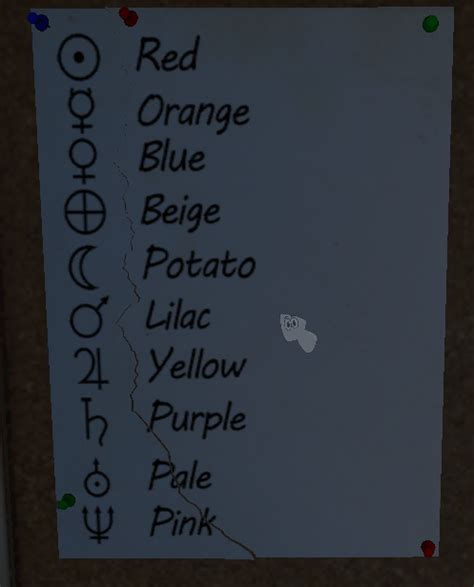 ☉ Red
☿ Orange
♀ Blue
⊕ Beige
☾ Potato
♂ Lilac
♃ Yellow
♄ Purple
⛢ Pale
♆ Pink